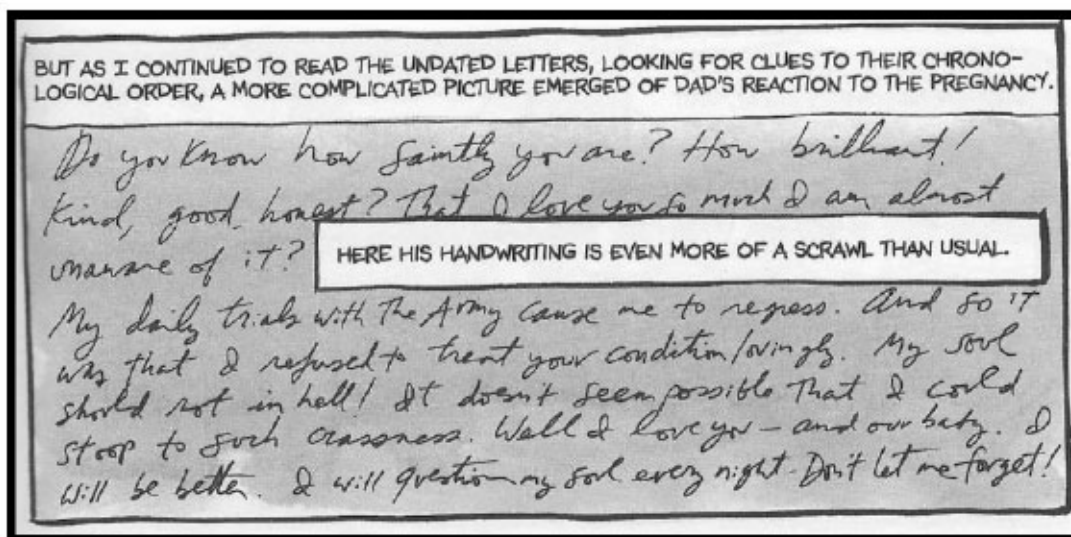 BUT AS I CONTINUED TO READ THE UNDATED LETTERS, LOOKING FOR CLUES TO THEIR CHRONO-
LOGICAL ORDER, A MORE COMPLICATED PICTURE EMERGED OF DAD'S REACTION TO THE PREGNANCY.
Do you know how saintly you are? How brilliant!
Kind, good, honest? That I love you so much I am almost
unaware of it?
HERE HIS HANDWRITING IS EVEN MORE OF A SCRAWL THAN USUAL.
My daily trials with The Army cause me to regress. And so it
was that I refused to treat your condition lovingly. My soul
should rot in hell! It doesn't seem possible that I could
stoop to such crassness. Well I love you – and our baby. I
will be better. I will question my soul every night – Don't let me forget!